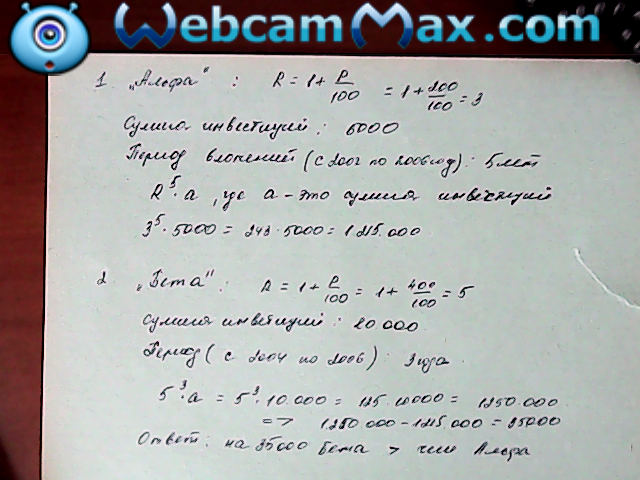 WebcamMax.com
1. „Альфа" : R = 1 + P/100 = 1 + 200/100 = 3
Сумма инвестиций: 5000
Период вложений (с 2002 по 2006 год): 5 лет
R^5 · a, где a – это сумма инвестиций
3^5 · 5000 = 243 · 5000 = 1 215.000
2. „Бета" : R = 1 + P/100 = 1 + 400/100 = 5
Сумма инвестиций: 10 000
Период (с 2004 по 2006): 3 года
5^3 · a = 5^3 · 10.000 = 125 · 10000 = 1250.000
=> 1250 000 – 1215.000 = 35000
Ответ: на 35000 Бета > чем Альфа